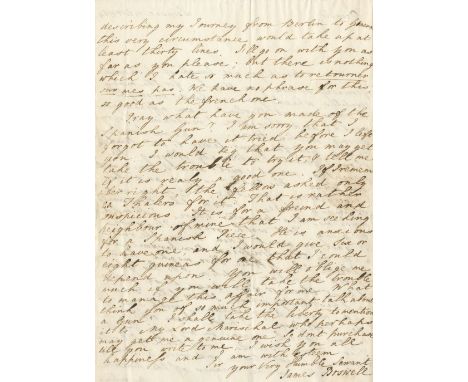 describing my Journey from Berlin to
this very circumstance would take up at
least thirty lines. I'll go on with you as
far as you please; but there is nothing
which I hate so much as to retourner
sur mes pas. We have no phrase for this
so good as the french one.
Pray what have you made of the
Spanish Gun? I am sorry that I
forgot to have it tried before I left
you. I would beg that you may yet
take the trouble to try it, & tell me
if it is really a good one. If I remem
ber right, the fellow asked only
Thalers for it. That is rather
suspicious. It is for a friend and
neighbour of mine that I am seeking
for a Spanish Piece. He is anxious
to have one and I would give six or
eight guineas for one that I could
depend upon. You will oblige me
much if you will take the trouble
to manage this affair for me. What
think you of so much important talk about
a Gun? I shall take the liberty to mention
it to My Lord Marischal who perhaps
may get me a genuine one. So don't purchase
till you write to me. I wish you all
happiness and I am with esteem
Sir your very humble Servant
James Boswell